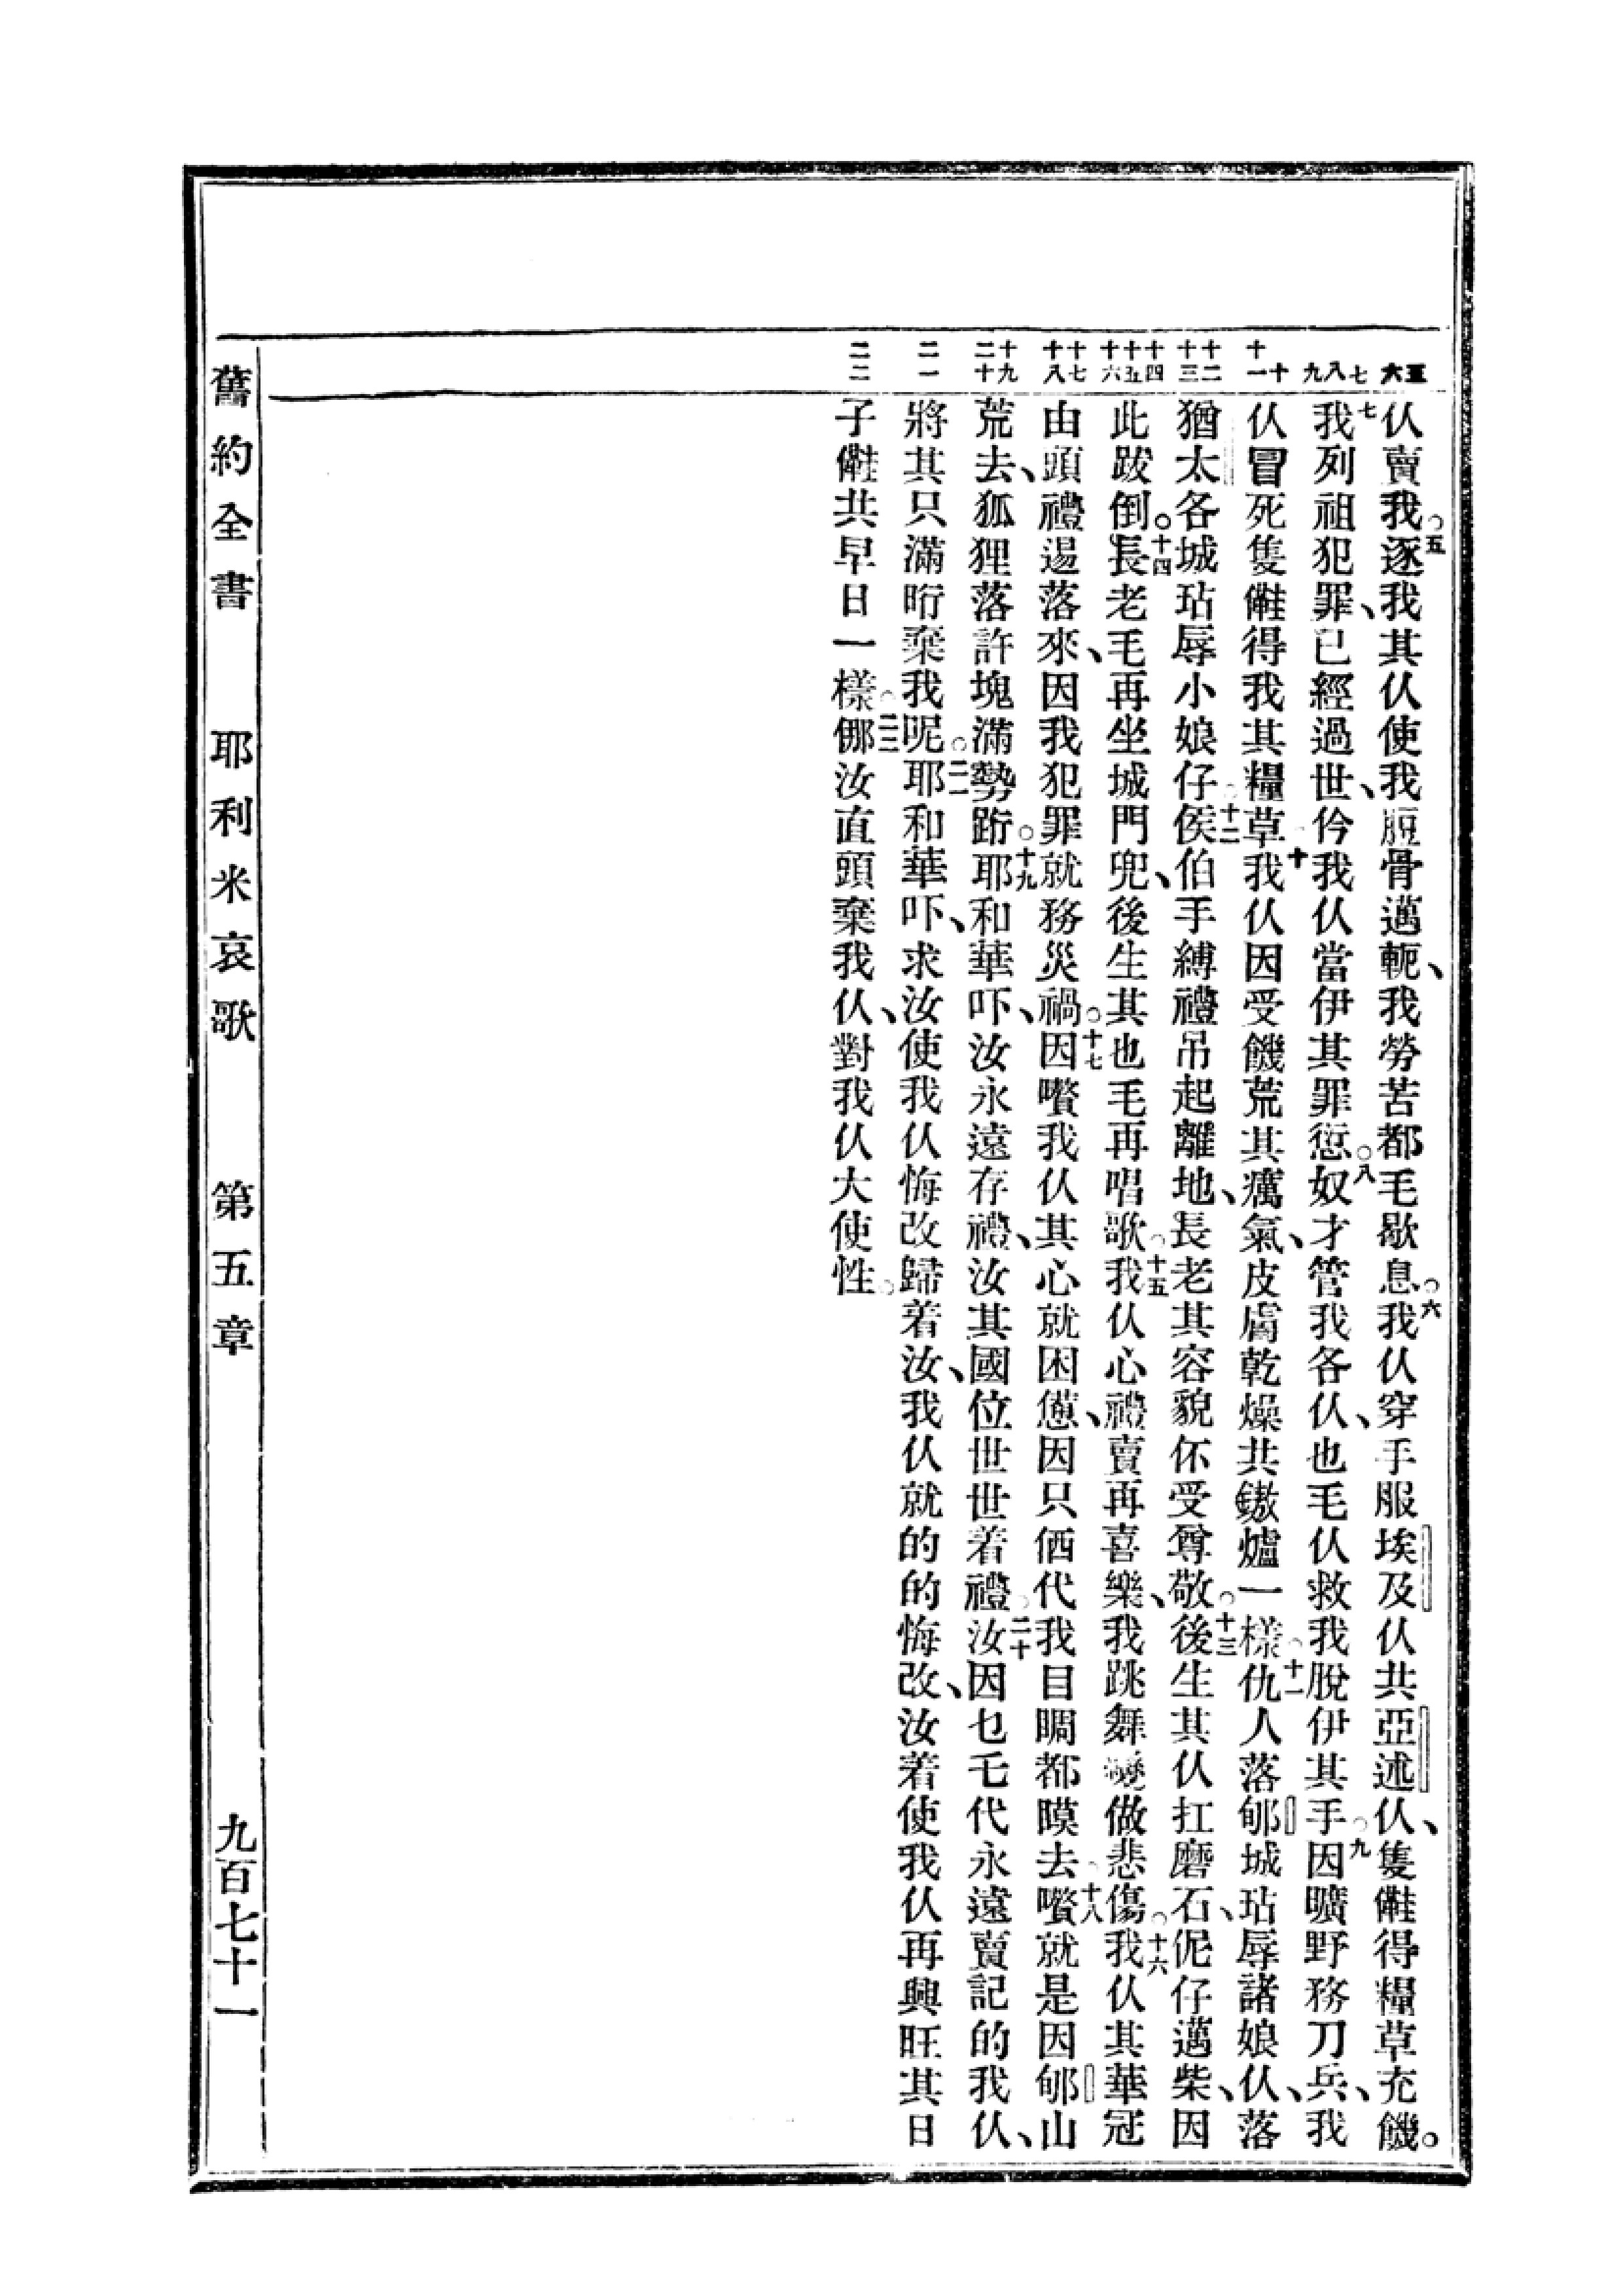 五 六 七 八 九 十 十一 十二 十三 十四 十五 十六 十七 十八 十九 二十 二一 二二
仈賣我。五逐我其仈使我脰骨邁軛、我勞苦都毛歇息。六我仈穿手服埃及仈共亞述仈、隻得糧草充饑。
七我列祖犯罪、已經過世、仱我仈當伊其罪愆。八奴才管我各仈、也毛仈救我脫伊其手。九因曠野務刀兵、我
仈冒死隻得我其糧草。十我仈因受饑荒其癘氣、皮膚乾燥共鏾爐一樣。十一仇人落郇城玷辱諸娘仈、落
猶太各城玷辱小娘仔。十二侯伯手縛禮吊起離地、長老其容貌伓受尊敬。十三後生其仈扛磨石、伲仔邁柴、因
此跋倒。十四長老毛再坐城門兜、後生其也毛再唱歌。十五我仈心禮賣再喜樂、我跳舞變做悲傷。十六我仈其華冠
由頭禮逿落來、因我犯罪就務災禍。十七因嚽我仈其心就困憊、因只仴代我目睭都瞙去。十八嚽就是因郇山
荒去、狐狸落許塊滿勢跡。十九耶和華吓、汝永遠存禮、汝其國位世世着禮。二十汝因乜乇代永遠賣記的我仈、
將其只滿昕棄我呢。二一耶和華吓、求汝使我仈悔改歸着汝、我仈就的的悔改、汝着使我仈再興旺其日
子共早日一樣。二二倻汝直頭棄我仈、對我仈大使性。
舊約全書 耶利米哀歌 第五章 九百七十一